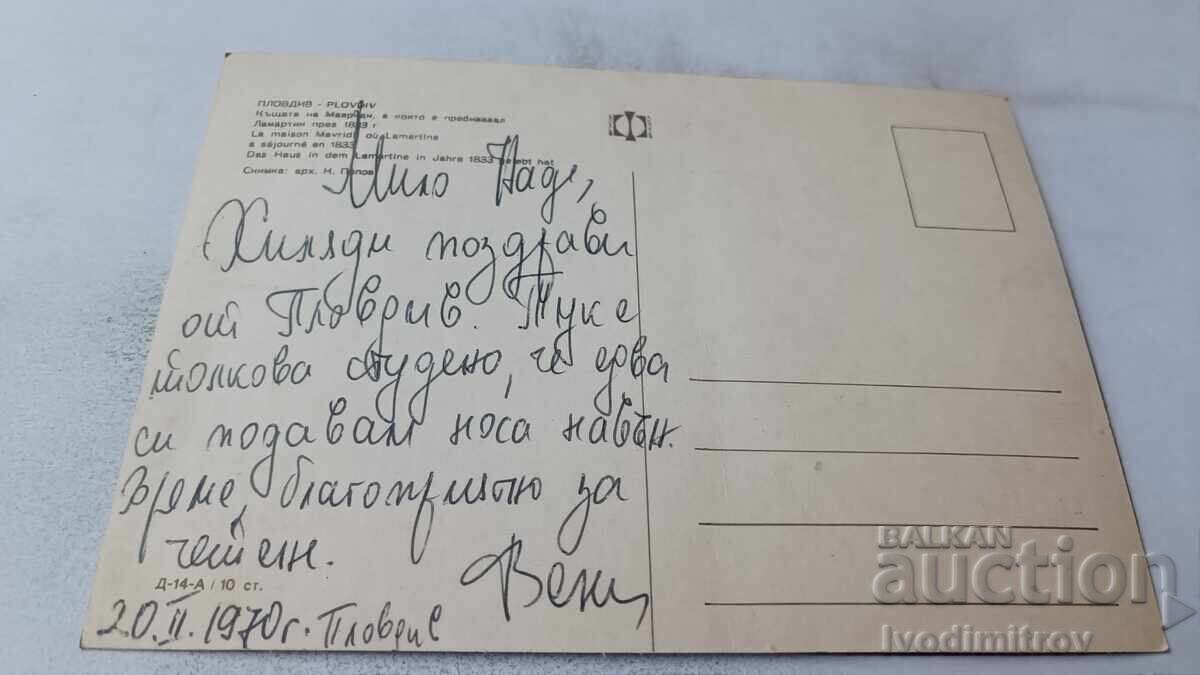 ПЛОВДИВ - PLOVDIV
Къщата на Мавриди, в която е пребивавал
Ламартин през 1833 г
La maison Mavridi où Lamartine
a séjourné en 1833
Das Haus in dem Lamartine in Jahre 1833 gelebt hat
Снимка: арх. Н. Попов
Мило Наде,
Хиляди поздрави
от Пловдив. Тук е
толкова студено, че едва
си подавам носа навън.
Време, благоприятно за
четене.
Вени
Д-14-А / 10 ст.
20.II.1970 г. Пловдив
BALKAN
auction
Ivodimitrov